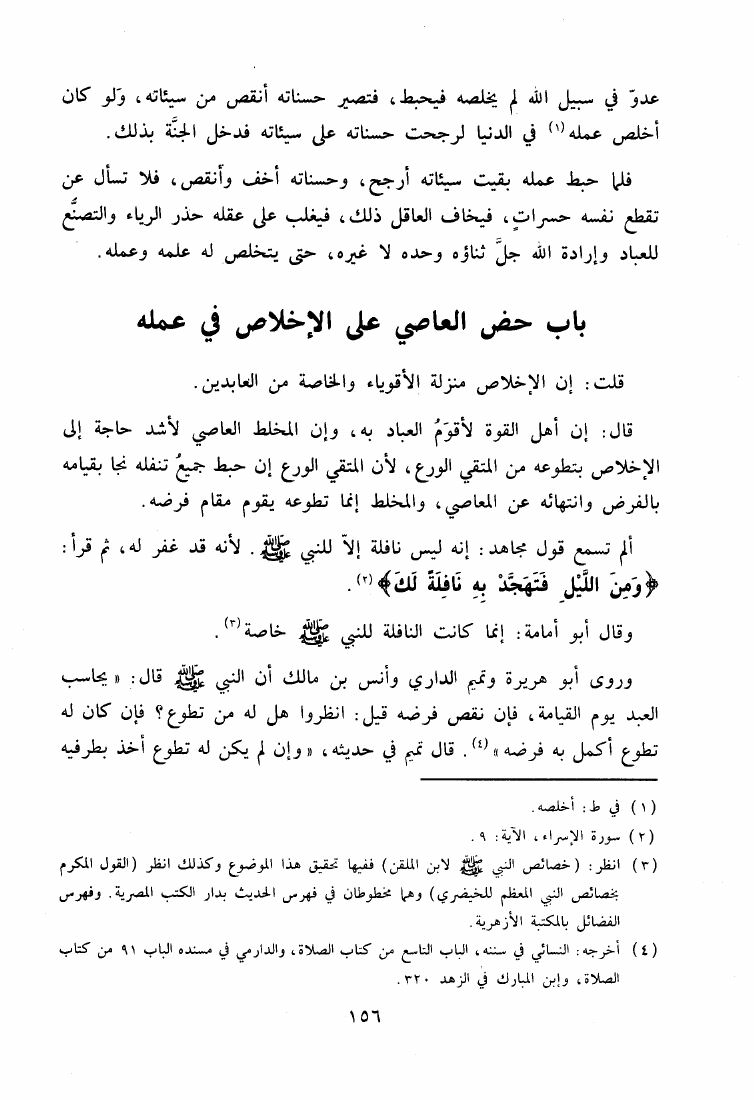 عدوّ في سبيل الله لم يخلصه فيحبط، فتصير حسناته أنقص من سيئاته، وَلو كان
أخلص عمله(١) في الدنيا لرجحت حسناته على سيئاته فدخل الجنَّة بذلك.
فلما حبط عمله بقيت سيئاته أرجح، وحسناته أخف وأنقص، فلا تسأل عن
تقطع نفسه حسراتٍ، فيخاف العاقل ذلك، فيغلب على عقله حذر الرياء والتصنُّع
للعباد وإرادة الله جلَّ ثناؤه وحده لا غيره، حتى يتخلص له علمه وعمله.
باب حض العاصي على الإخلاص في عمله
قلت: إن الإخلاص منزلة الأقوياء والخاصة من العابدين.
قال: إن أهل القوة لأقوَمُ العباد به، وإن المخلط العاصي لأشد حاجة إلى
الإخلاص بتطوعه من المتقي الورع، لأن المتقي الورع إن حبط جميعُ تنفله نجا بقيامه
بالفرض وانتهائه عن المعاصي، والمخلط إنما تطوعه يقوم مقام فرضه.
ألم تسمع قول مجاهد: إنه ليس نافلة إلاّ للنبي ﷺ. لأنه قد غفر له، ثم قرأ:
﴿وَمِنَ اللَّيْلِ فَتَهَجَّدْ بِهِ نَافِلَةً لَكَ﴾(٢).
وقال أبو أمامة: إنما كانت النافلة للنبي ﷺ خاصة(٣).
وروى أبو هريرة وتميم الداري وأنس بن مالك أن النبي ﷺ قال: «يحاسب
العبد يوم القيامة، فإن نقص فرضه قيل: انظروا هل له من تطوع؟ فإن كان له
تطوع أكمل به فرضه»(٤). قال تميم في حديثه، «وإن لم يكن له تطوع أخذ بطرفيه
(١) في ط: أخلصه.
(٢) سورة الإسراء، الآية: ٩.
(٣) انظر: (خصائص النبي ﷺ لابن الملقن) ففيها تحقيق هذا الموضوع وكذلك انظر (القول المكرم
بخصائص النبي المعظم للخيضري) وهما مخطوطان في فهرس الحديث بدار الكتب المصرية. وفهرس
الفضائل بالمكتبة الأزهرية.
(٤) أخرجه: النسائي في سننه، الباب التاسع من كتاب الصلاة، والدارمي في مسنده الباب ٩١ من كتاب
الصلاة، وإبن المبارك في الزهد ٣٢٠.
١٥٦